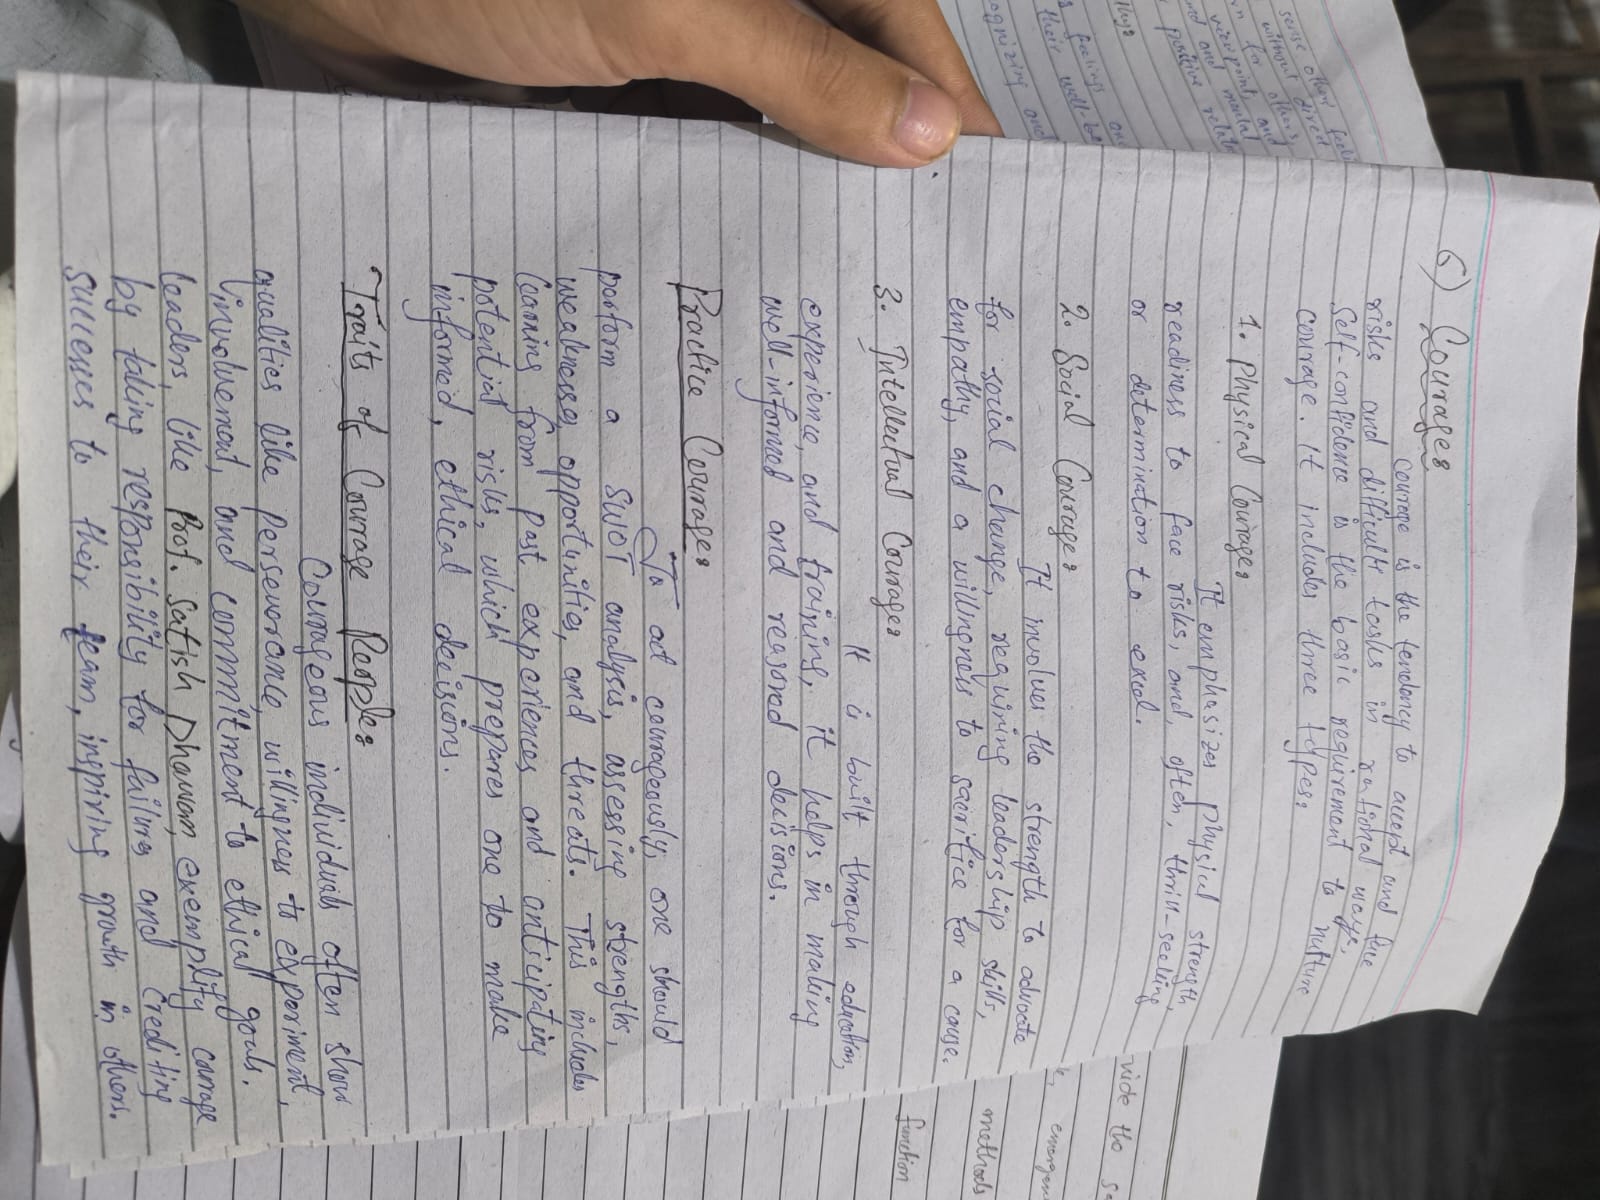 sense others feeli
without direct
rn for others,
viewpoint, and
and mental
positive relatio
thy:
feelings and
their well-be
ognizing and
6) Courage:
Courage is the tendency to accept and face
risks and difficult tasks in rational ways,
Self-confidence is the basic requirement to nurture
courage. It includes three types:
1. Physical Courage:
It emphasizes physical strength,
readiness to face risks, and, often, thrill-seeking
or determination to excel.
2. Social Courage:
It involves the strength to advocate
for social change, requiring leadership skills,
empathy, and a willingness to sacrifice for a cause.
3. Intellectual Courage:
It is built through education,
experience, and training, it helps in making
well-informed and reasoned decisions.
Practice Courage:
To act courageously, one should
perform a SWOT analysis, assessing strengths,
weaknesses, opportunities, and threats. This includes
learning from past experiences and anticipating
potential risks, which prepares one to make
informed, ethical decisions.
Traits of Courage People:
Courageous individuals often show
qualities like perseverance, willingness to experiment,
involvement, and commitment to ethical goals.
leaders, like Prof. Satish Dhawan, exemplify courage
by taking responsibility for failures and crediting
successes to their team, inspiring growth in others.
vide the
emergen
methods
function